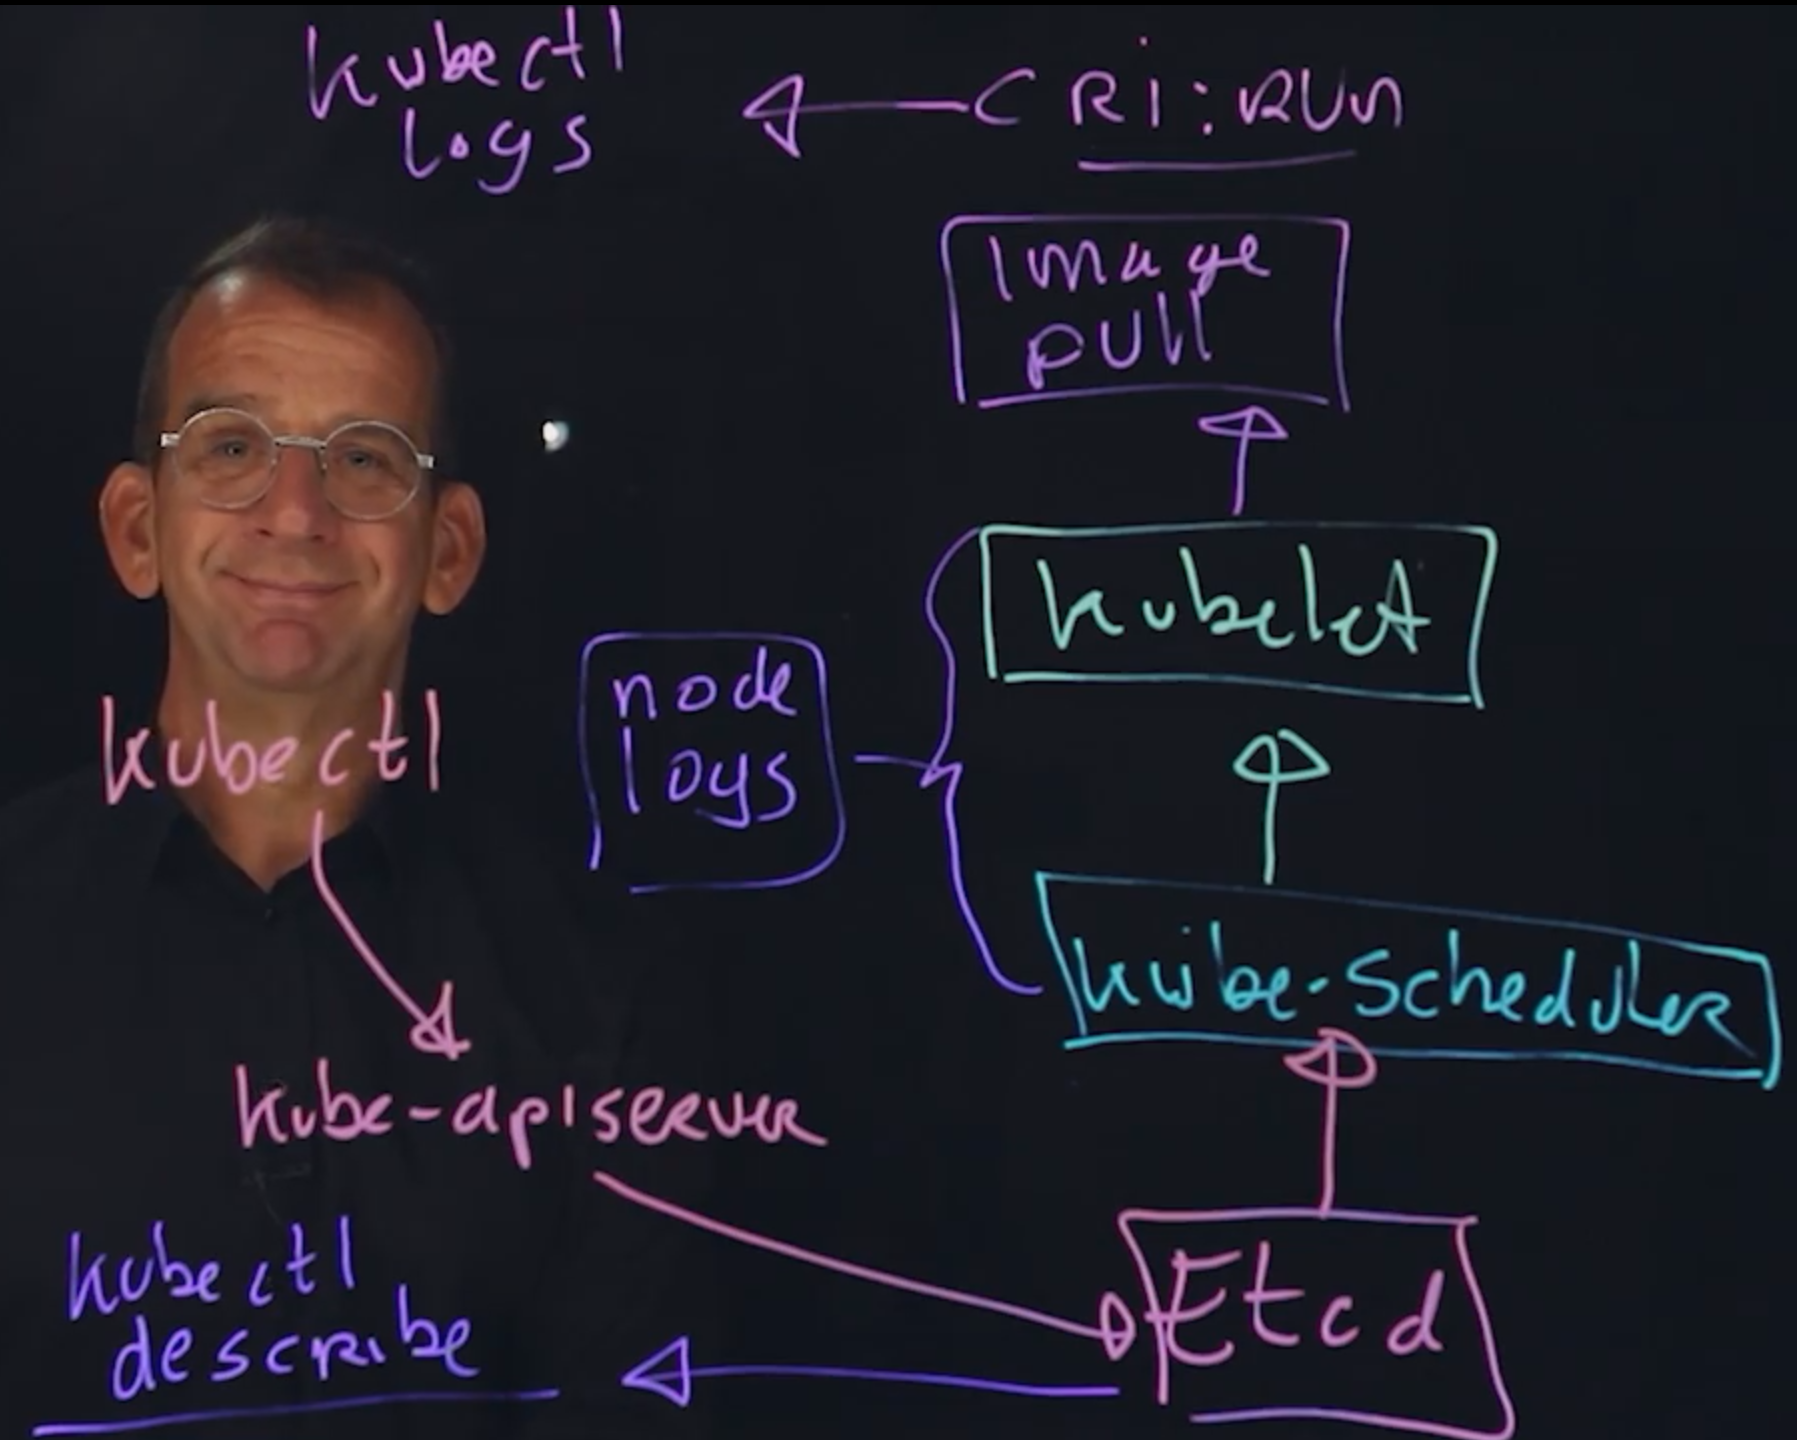 kubectl
logs
CRI: RUN
image
pull
kubelet
node
logs
kubectl
kube-scheduler
kube-apiserver
Etcd
kubectl
describe